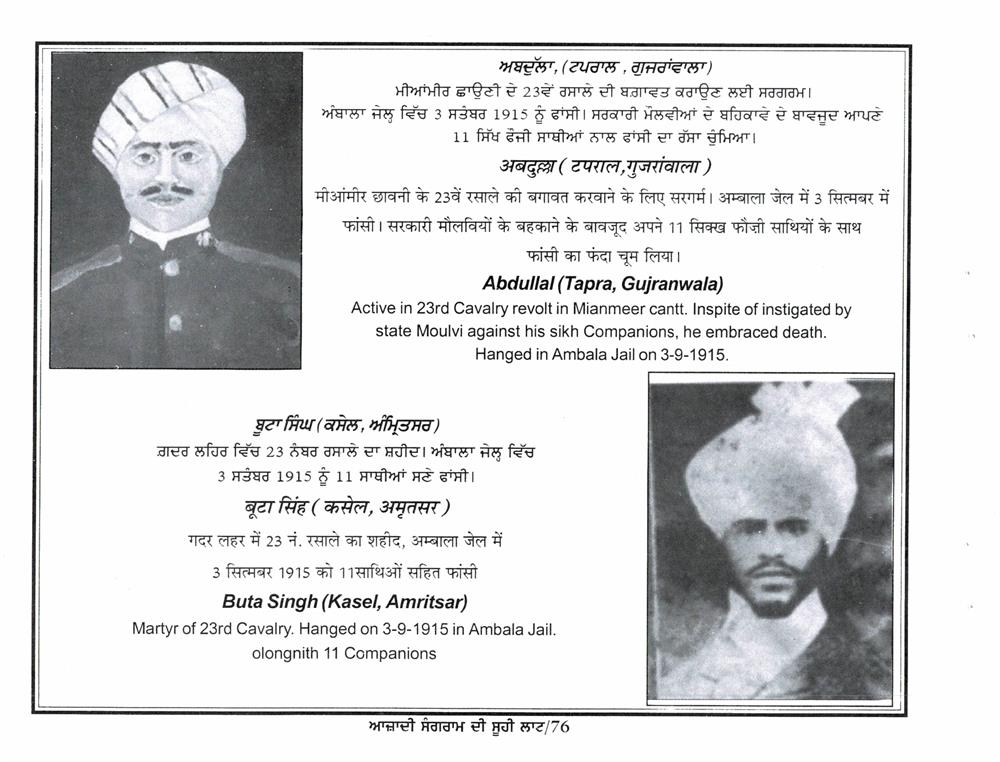 ਅਬਦੁੱਲਾ, (ਟਪਰਾਲ , ਗੁਜਰਾਂਵਾਲਾ)
ਮੀਆਂਮੀਰ ਛਾਉਣੀ ਦੇ 23ਵੇਂ ਰਸਾਲੇ ਦੀ ਬਗ਼ਾਵਤ ਕਰਾਉਣ ਲਈ ਸਰਗਰਮ।
ਅੰਬਾਲਾ ਜੇਲ੍ਹ ਵਿੱਚ 3 ਸਤੰਬਰ 1915 ਨੂੰ ਫਾਂਸੀ। ਸਰਕਾਰੀ ਮੌਲਵੀਆਂ ਦੇ ਬਹਿਕਾਵੇ ਦੇ ਬਾਵਜੂਦ ਆਪਣੇ
11 ਸਿੱਖ ਫੌਜੀ ਸਾਥੀਆਂ ਨਾਲ ਫਾਂਸੀ ਦਾ ਰੱਸਾ ਚੁੰਮਿਆ।
अबदुल्ला ( टपराल,गुजरांवाला )
मीआंमीर छावनी के 23वें रसाले की बगावत करवाने के लिए सरगर्म। अम्बाला जेल में 3 सितम्बर में
फांसी। सरकारी मौलवियों के बहकाने के बावजूद अपने 11 सिक्ख फौजी साथियों के साथ
फांसी का फंदा चूम लिया।
Abdullal (Tapra, Gujranwala)
Active in 23rd Cavalry revolt in Mianmeer cantt. Inspite of instigated by
state Moulvi against his sikh Companions, he embraced death.
Hanged in Ambala Jail on 3-9-1915.
ਬੂਟਾ ਸਿੰਘ (ਕਸੇਲ, ਅੰਮ੍ਰਿਤਸਰ)
ਗ਼ਦਰ ਲਹਿਰ ਵਿੱਚ 23 ਨੰਬਰ ਰਸਾਲੇ ਦਾ ਸ਼ਹੀਦ। ਅੰਬਾਲਾ ਜੇਲ੍ਹ ਵਿੱਚ
3 ਸਤੰਬਰ 1915 ਨੂੰ 11 ਸਾਥੀਆਂ ਸਣੇ ਫਾਂਸੀ।
बूटा सिंह ( कसेल, अमृतसर )
गदर लहर में 23 नं. रसाले का शहीद, अम्बाला जेल में
3 सितम्बर 1915 को 11साथिओं सहित फांसी
Buta Singh (Kasel, Amritsar)
Martyr of 23rd Cavalry. Hanged on 3-9-1915 in Ambala Jail.
olongnith 11 Companions
ਆਜ਼ਾਦੀ ਸੰਗਰਾਮ ਦੀ ਸੂਹੀ ਲਾਟ/76